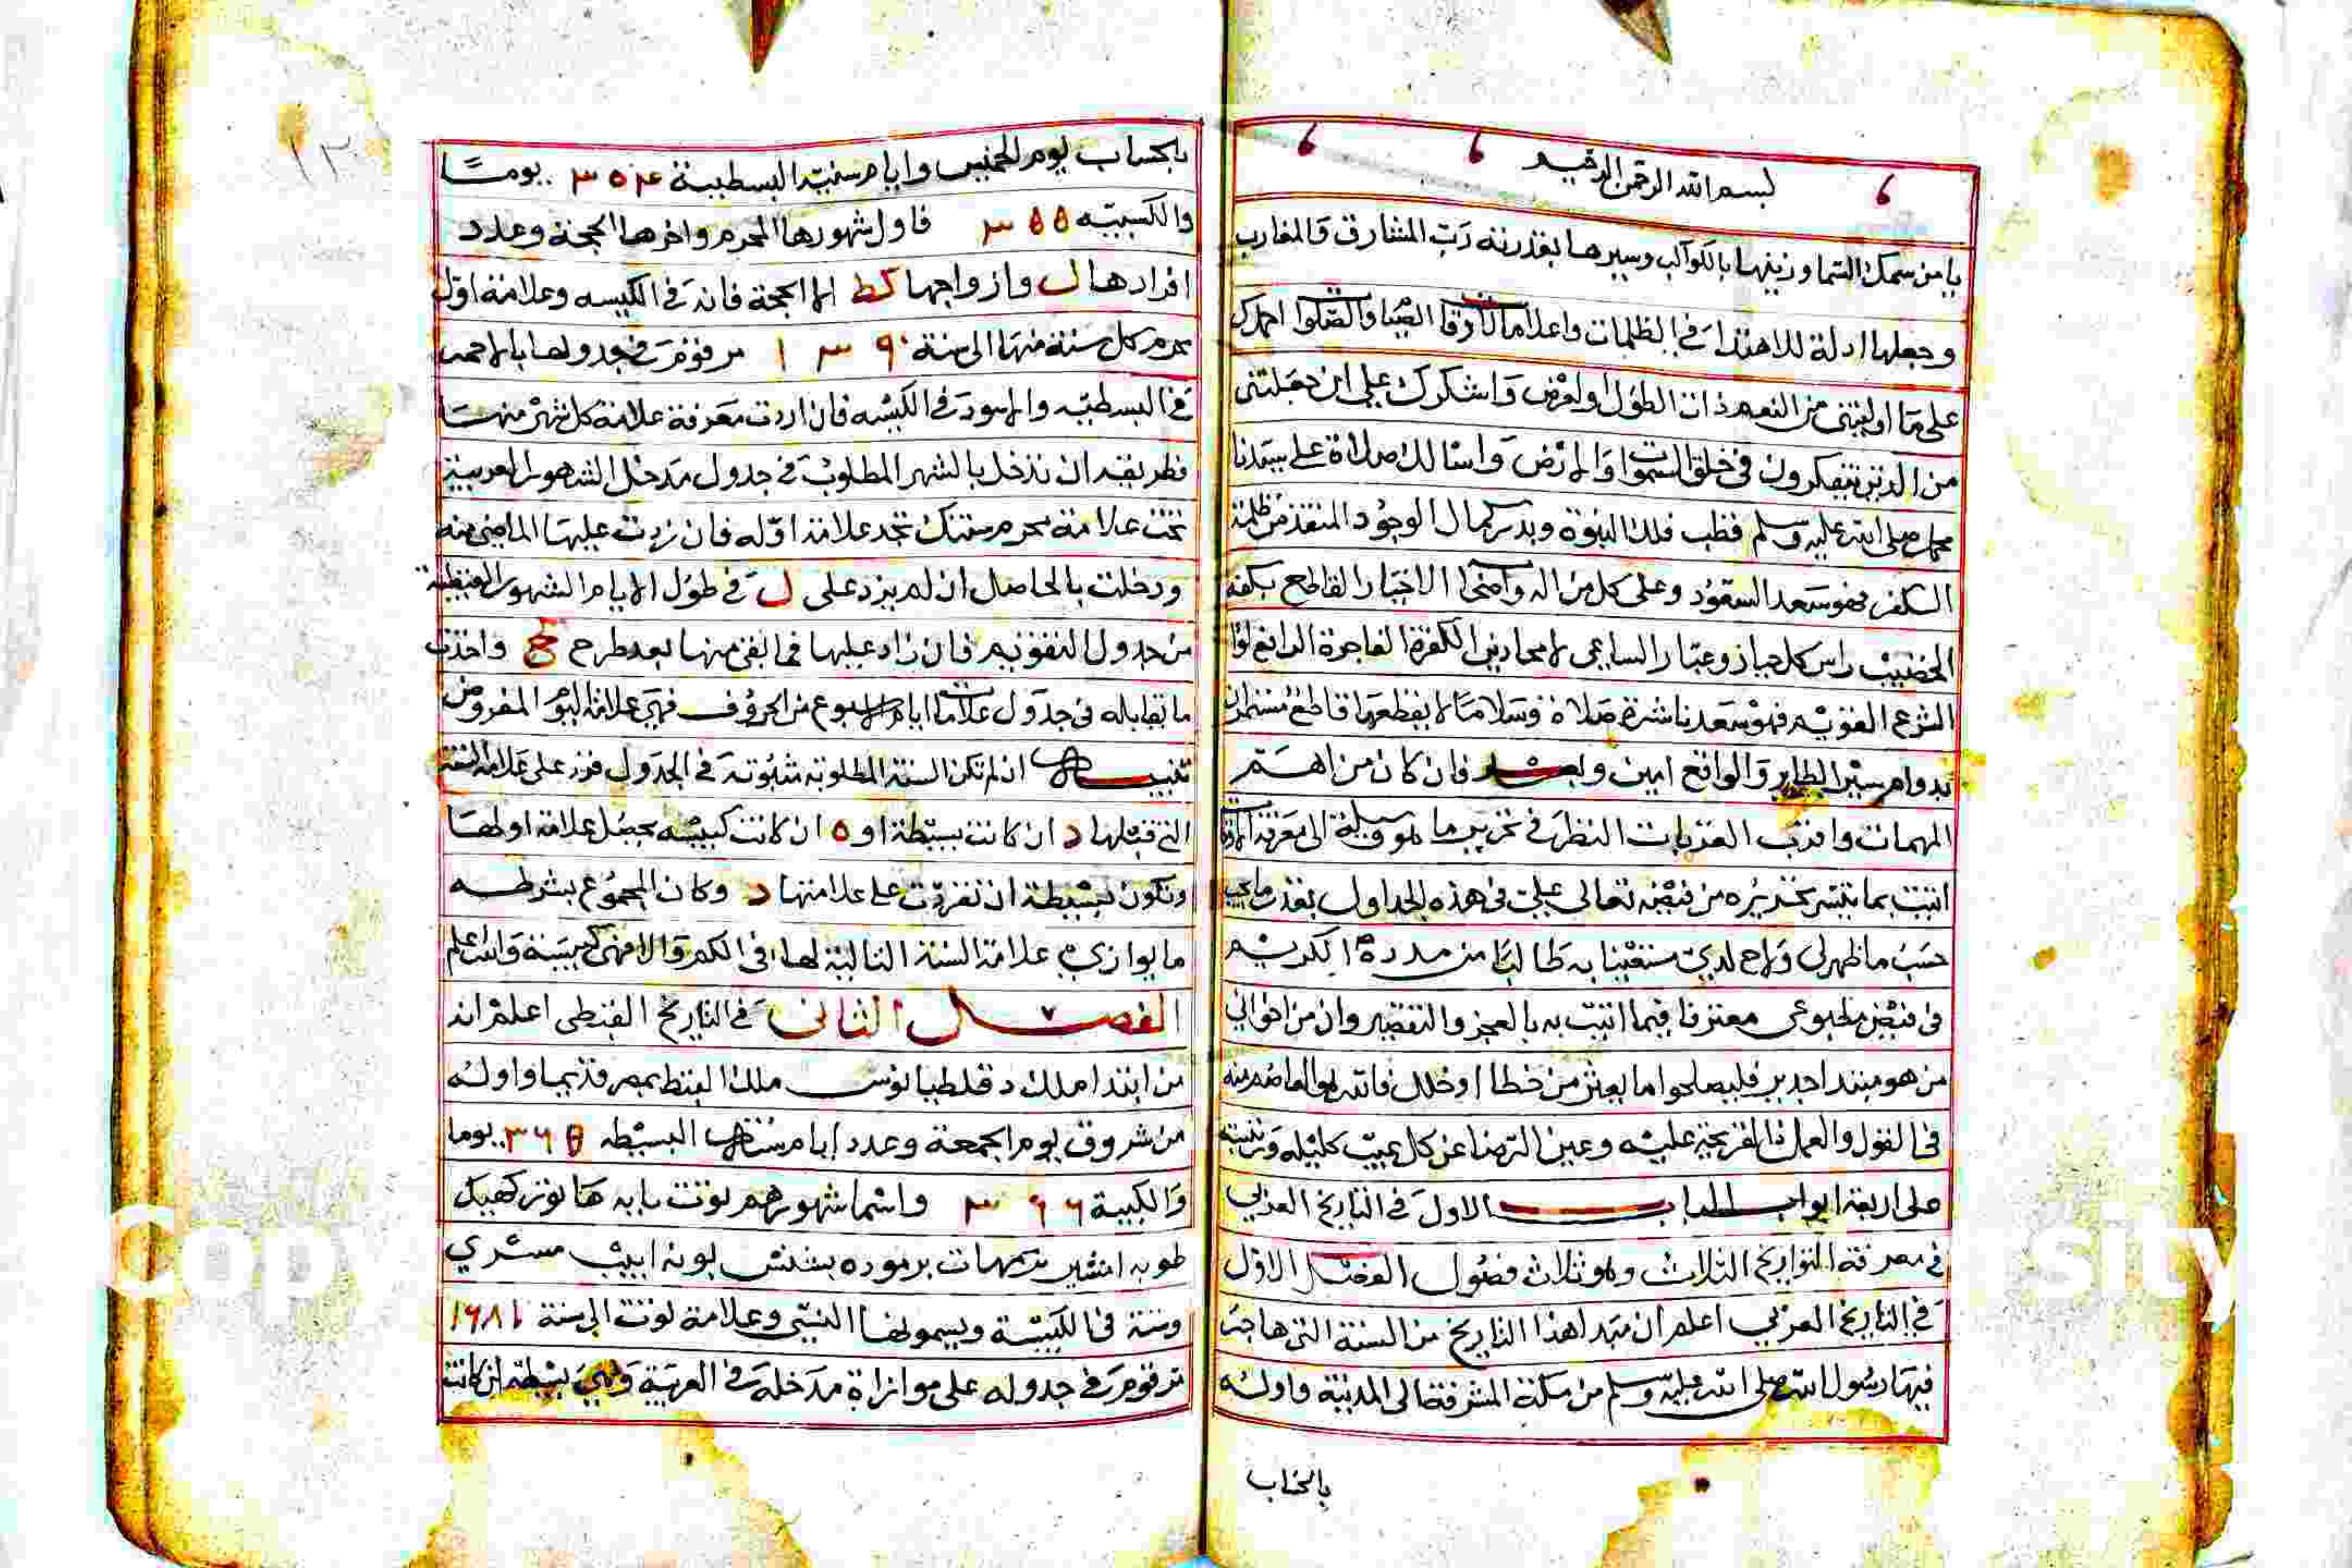 بسم الله الرحمن الرحيم
يا من سمك السما وزينها بالكواكب وسيرها بقدرته رب المشارق والمغارب
وجعلها ادلة للاهتدا في الظلمات واعلاما لاوقا الضيا والصلوا احمدك
على ما اوليتني من النعم ذات الطول والعرض واشكرك على ان جعلتني
من الذين يتفكرون في خلق السموات والارض واسالك صلاة على سيدنا
محمد صلى الله عليه وسلم قطب فلك النبوة وبدر كمال الوجود المنقذ من ظلمة
الكفر فهو سعد السعود وعلى كل من اله واصحا الاخيار القاطع بكفه
الخضيب راس كل جبار وعيار الساعي لامحادين الكفرة الفاجرة الرافع لوا
الشرع القويم فهو سعد ناشرة صلاة وسلاما لا يقطعها قاطع مستمران
بدوام سير الطاير والواقع امين وبعد فان كان من اهم
المهمات واقرب القربات النظر في تحرير ما هو وسيلة الى معرفة الاوقا
اتيت بما تيسر تحريره من فيضه تعالى علي في هذه الجداول بقدر ما يجب
حسب ما ظهر لي ولاح لدي مستعينا به طالبا من مدده الكريم
في فيض مطبوعي معترفا فيما اتيت به بالعجز والتقصير وان من اخواني
من هو مبتدا جدير فليصلحوا ما يعثر من خطا او خلل فانه هو العاصم منه
في القول والعمل فالقريحة عليله وعين الرضا عن كل عيب كليله ورتبته
على اربعة ابواب الباب الاول في التاريخ العربي
في معرفة التواريخ الثلاث وهو ثلاث فصول الفصل الاول
في التاريخ العربي اعلم ان مبدا هذا التاريخ من السنة التي هاجر
فيها رسول الله صلى الله عليه وسلم من مكة المشرفة الى المدينة واوله
بالحساب
١٣
بالحساب يوم الخميس وايام سنيته البسيطة ٣٥٤ يوما
والكبيسه ٣٥٥ فاول شهورها المحرم واخرها الحجة وعدد
افرادها ل وازواجها كط الا الحجة فانه في الكبيسه وعلامة اول
محرم كل سنة منها الى سنة ١٣٩٠ مرقوم في جدولها بالاحمر
في البسيطه والاسود في الكبيسه فان اردت معرفة علامة كل شهر منها
فطريقه ان تدخل بالشهر المطلوب في جدول مدخل الشهور العربية
تحت علامة محرم سنتك تجد علامة اوله فان زدت عليها الماضي منه
ودخلت بالحاصل ان لم يزد على ل في طول الايام الشهور القبطية
من جدول التقويم فان زاد عليها فما بقي منها بعد طرح واخذت
ما يقابله في جدول علامات ايام الاسبوع من الحروف فهي علامة اليوم المفروض
تنبيه ان لم تكن السنة المطلوبة مثبوته في الجدول فزد على علامة السنة
التي قبلها د ان كانت بسيطة او ه ان كانت كبيسه يحصل علامة اولها
وتكون بسيطة ان تفردت على علامتها د وكان المجموع بشرطه
ما يوازي علامة السنة التالية لها في الكم والا فهي كبيسة والله اعلم
الفصل الثاني في التاريخ القبطي اعلم انه
من ابتدا ملك دقلطيانوس ملك القبط بمصر قديما واوله
من شروق يوم الجمعة وعدد ايام سنته البسيطه ٣٦٥ يوما
والكبيسة ٣٦٦ واسما شهورهم توت بابه هاتور كهيك
طوبه امشير برمهات برموده بشنس بونه ابيب مسري
وستة في الكبيسة ويسمونها النسي وعلامة توت الى سنة ١٦٨١
مرقوم في جدوله على موازاة مدخله في العربية وهي بسيطة ان كانت